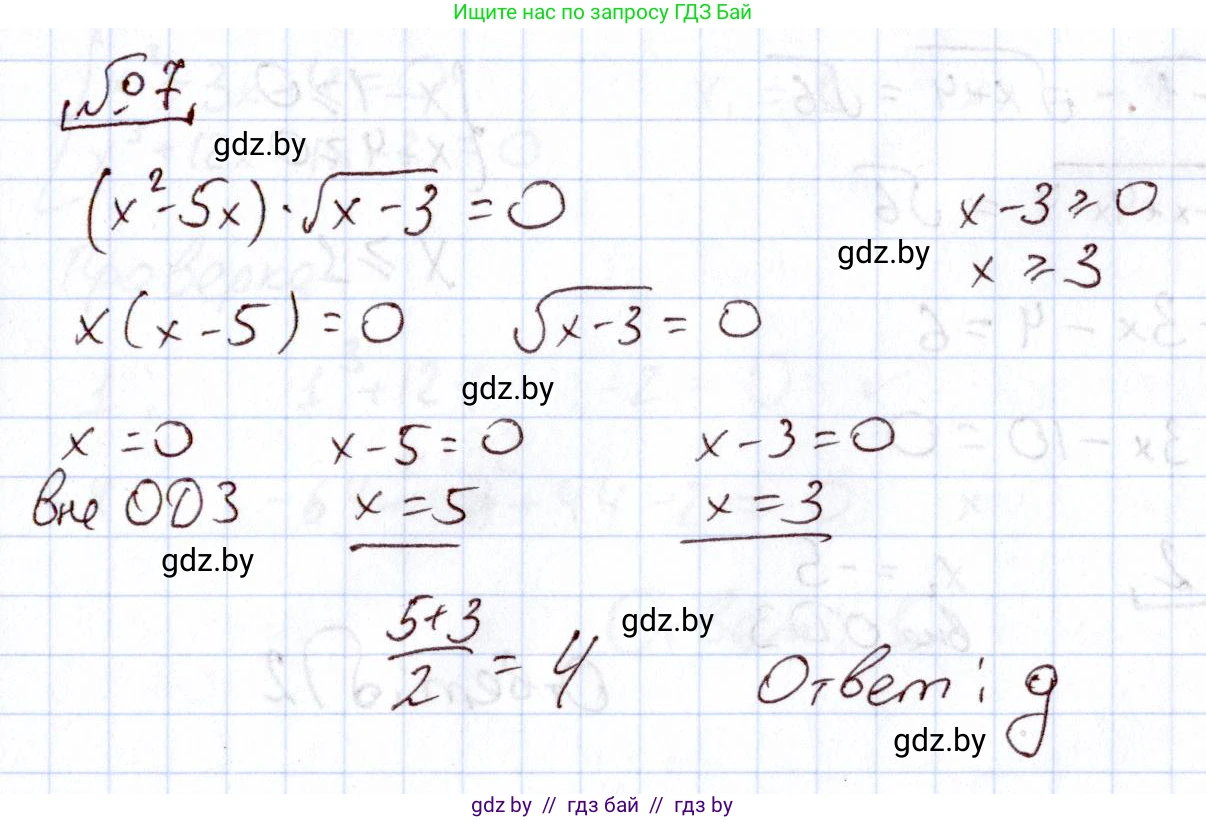 Ищите нас по запросу ГДЗ Бай
№ 7
gdz.by
(x² - 5x) · √(x - 3) = 0
x - 3 ≥ 0
gdz.by
x ≥ 3
x(x - 5) = 0 √(x - 3) = 0
gdz.by
x = 0 x - 5 = 0 x - 3 = 0
вне ОДЗ x = 5 x = 3
gdz.by
(5+3)/2 = 4
gdz.by
Ответ: д
gdz.by
gdz by // гдз бай // гдз by